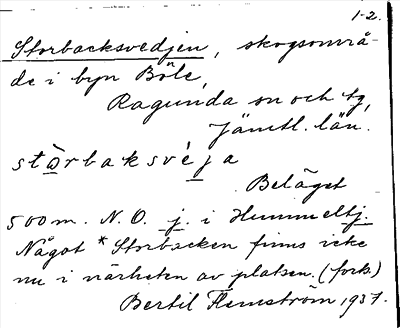 1-2.
Storbacksvedjen, skogsområ-
de i byn Böle,
Ragunda sn och tg,
Jämtl. län.
stòrbaksvéja
Beläget
500 m. N.O. j. i Hummeltj.
Något *Storbacken finns icke
nu i närheten av platsen. (forts.)
Bertil Flemström, 1937.